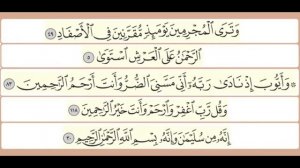 وَتَرَى ٱلْمُجْرِمِينَ يَوْمَئِذٍ مُّقَرَّنِينَ فِى ٱلْأَصْفَادِ ٤٩
ٱلرَّحْمَٰنُ عَلَى ٱلْعَرْشِ ٱسْتَوَىٰ ٥
۞ وَأَيُّوبَ إِذْ نَادَىٰ رَبَّهُۥٓ أَنِّى مَسَّنِىَ ٱلضُّرُّ وَأَنتَ أَرْحَمُ ٱلرَّٰحِمِينَ ٨٣
وَقُل رَّبِّ ٱغْفِرْ وَٱرْحَمْ وَأَنتَ خَيْرُ ٱلرَّٰحِمِينَ ١١٨
إِنَّهُۥ مِن سُلَيْمَٰنَ وَإِنَّهُۥ بِسْمِ ٱللَّهِ ٱلرَّحْمَٰنِ ٱلرَّحِيمِ ٣٠